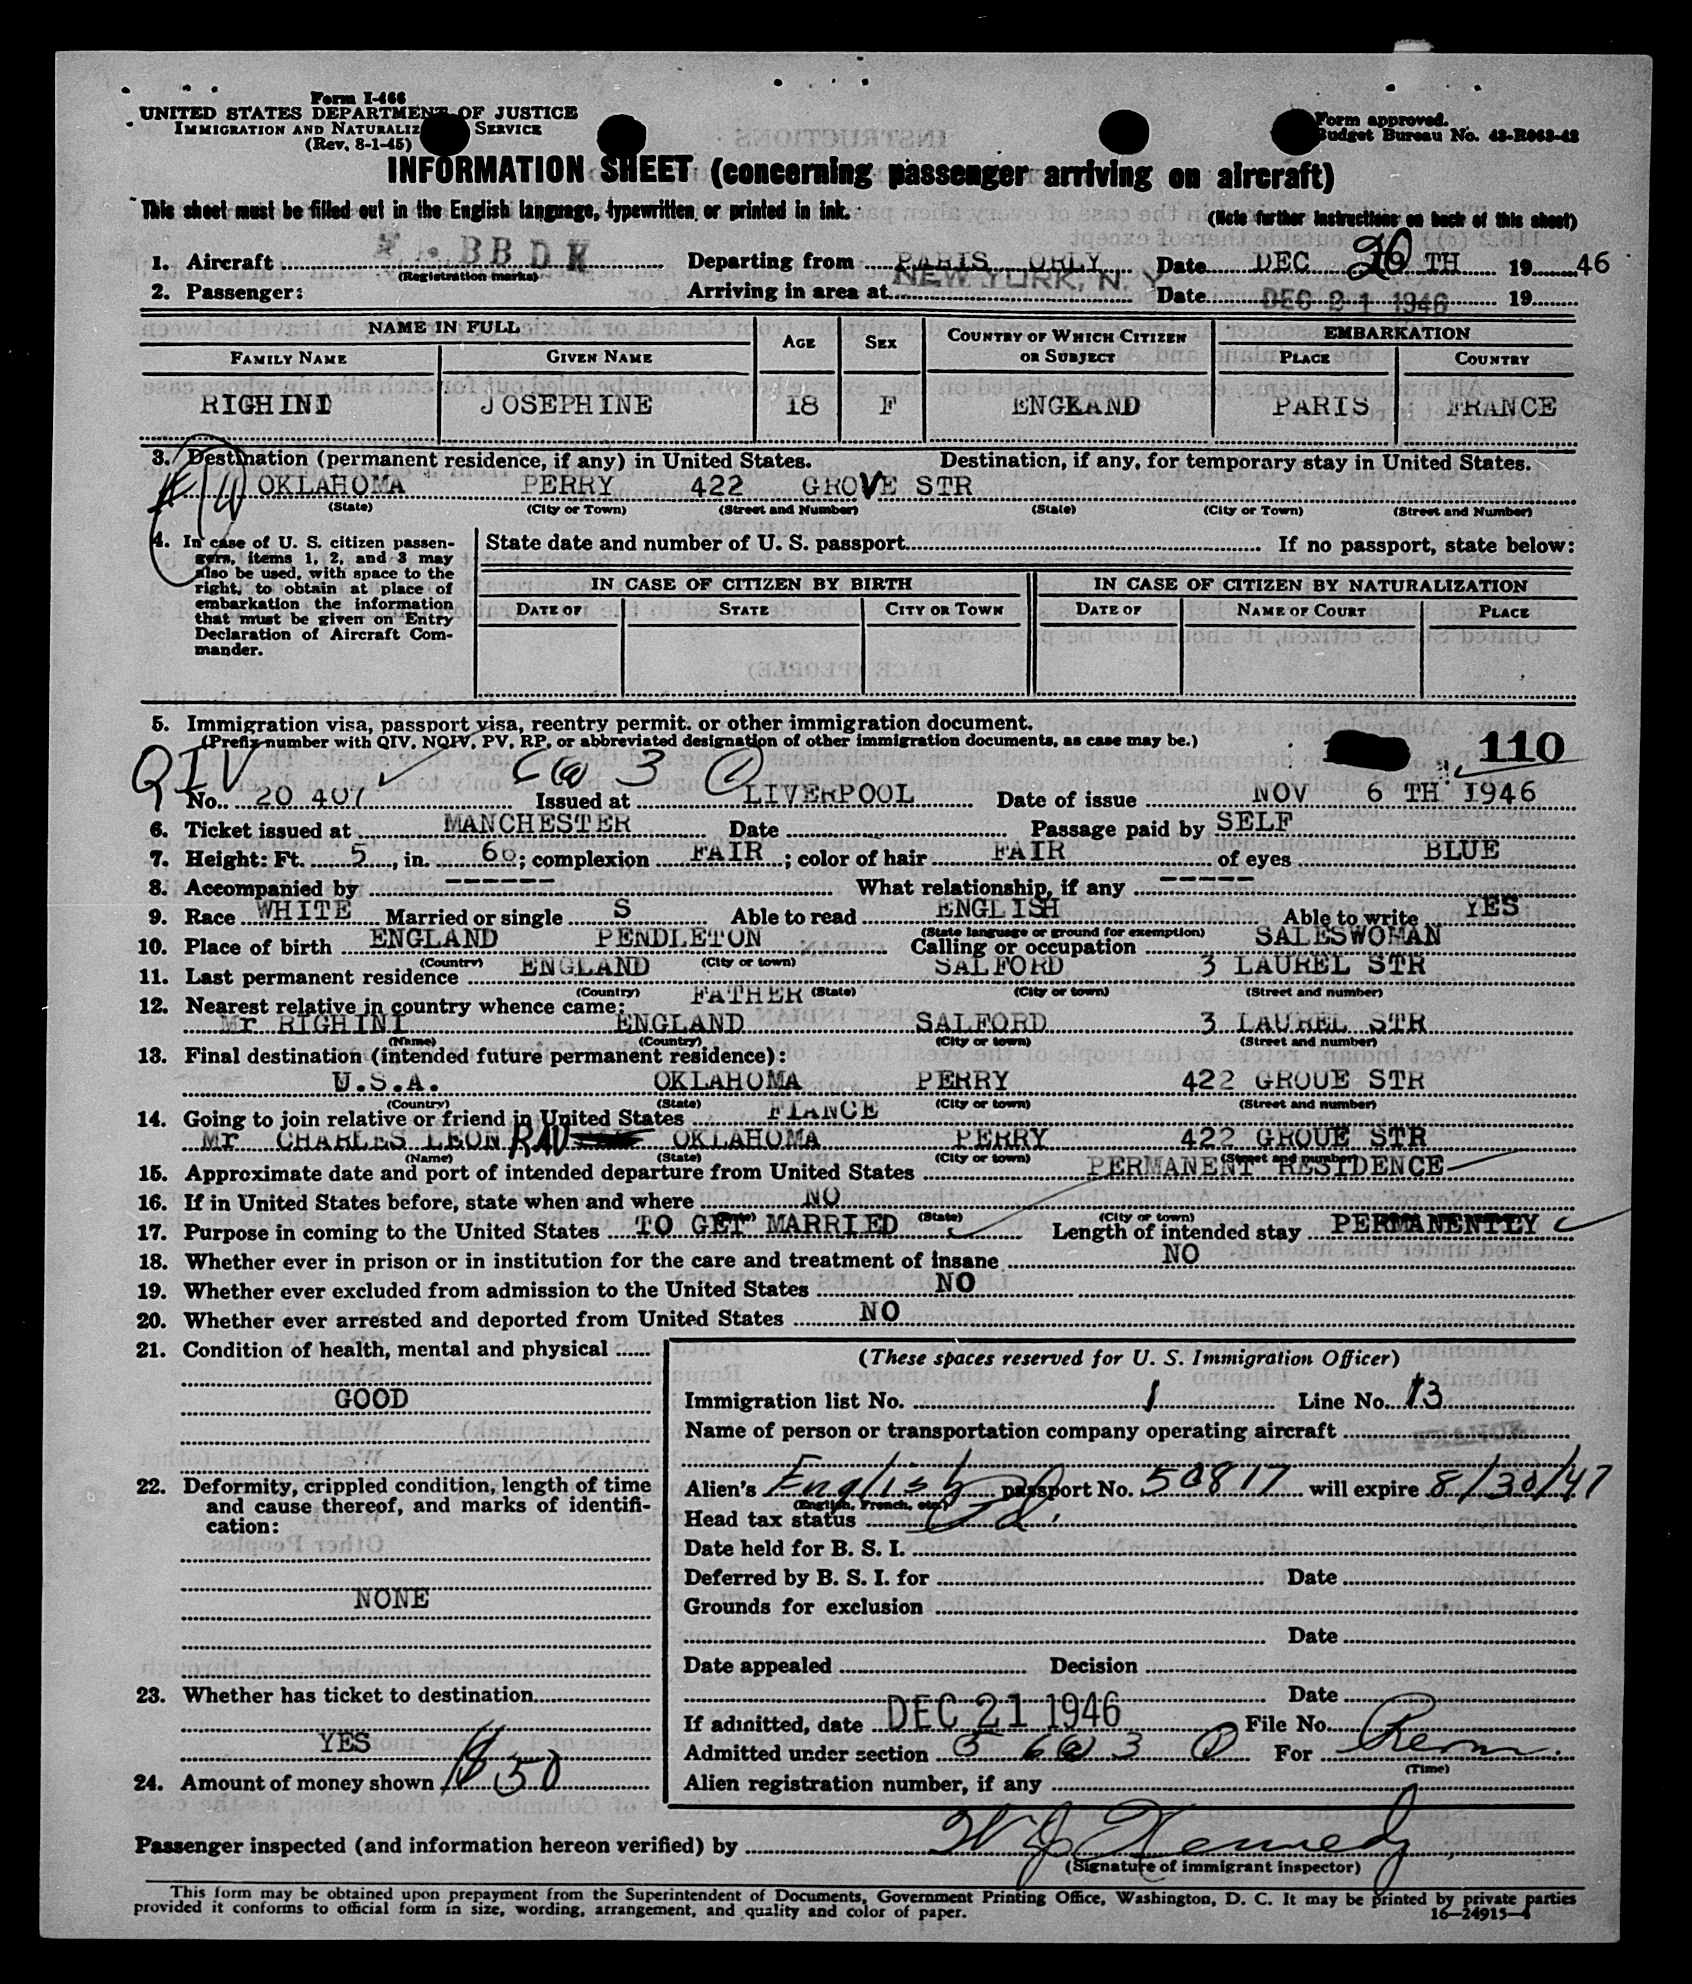 Form I-466
UNITED STATES DEPARTMENT OF JUSTICE
IMMIGRATION AND NATURALIZ SERVICE
(Rev. 8-1-45)
Form approved.
Budget Bureau No. 43-R063-42
INFORMATION SHEET (concerning passenger arriving on aircraft)
This sheet must be filled out in the English language, typewritten or printed in ink.
(Note further instructions on back of this sheet)
1. Aircraft BBDK Departing from PARIS ORLY Date DEC 20 TH 19 46
(Registration marks)
2. Passenger: Arriving in area at NEW YORK, N. Y. Date DEC 21 1946 19
NAME IN FULL AGE SEX COUNTRY OF WHICH CITIZEN OR SUBJECT EMBARKATION
FAMILY NAME GIVEN NAME PLACE COUNTRY
RIGHINI JOSEPHINE 18 F ENGLAND PARIS FRANCE
3. Destination (permanent residence, if any) in United States. Destination, if any, for temporary stay in United States.
OKLAHOMA PERRY 422 GROVE STR
(State) (City or Town) (Street and Number) (State) (City or Town) (Street and Number)
4. In case of U. S. citizen passengers, items 1, 2, and 3 may
also be used, with space to the
right, to obtain at place of
embarkation the information
that must be given on Entry
Declaration of Aircraft Commander.
State date and number of U. S. passport If no passport, state below:
IN CASE OF CITIZEN BY BIRTH IN CASE OF CITIZEN BY NATURALIZATION
DATE OF STATE CITY OR TOWN DATE OF NAME OF COURT PLACE
5. Immigration visa, passport visa, reentry permit, or other immigration document.
(Prefix number with QIV, NQIV, PV, RP, or abbreviated designation of other immigration documents, as case may be.)
110
QIV 3
No. 20 407 Issued at LIVERPOOL Date of issue NOV 6 TH 1946
6. Ticket issued at MANCHESTER Date Passage paid by SELF
7. Height: Ft. 5, in. 60; complexion FAIR; color of hair FAIR of eyes BLUE
8. Accompanied by ------ What relationship, if any -----
9. Race WHITE Married or single S Able to read ENGLISH Able to write YES
(State language or ground for exemption)
10. Place of birth ENGLAND PENDLETON Calling or occupation SALESWOMAN
(Country) (City or town)
11. Last permanent residence ENGLAND SALFORD 3 LAUREL STR
(Country) (State) (City or town) (Street and number)
12. Nearest relative in country whence came: FATHER
Mr RIGHINI ENGLAND SALFORD 3 LAUREL STR
(Name) (Country) (City or town) (Street and number)
13. Final destination (intended future permanent residence):
U.S.A. OKLAHOMA PERRY 422 GROUE STR
(Country) (State) (City or town) (Street and number)
14. Going to join relative or friend in United States FIANCE
Mr CHARLES LEON RAU OKLAHOMA PERRY 422 GROUE STR
(Name) (State) (City or town) (Street and number)
15. Approximate date and port of intended departure from United States PERMANENT RESIDENCE
16. If in United States before, state when and where NO
(State) (City or town)
17. Purpose in coming to the United States TO GET MARRIED Length of intended stay PERMANENTLY
18. Whether ever in prison or in institution for the care and treatment of insane NO
19. Whether ever excluded from admission to the United States NO
20. Whether ever arrested and deported from United States NO
21. Condition of health, mental and physical
GOOD
22. Deformity, crippled condition, length of time
and cause thereof, and marks of identification:
NONE
23. Whether has ticket to destination
YES
24. Amount of money shown $50
(These spaces reserved for U. S. Immigration Officer)
Immigration list No. 1 Line No. 13
Name of person or transportation company operating aircraft
Alien's English passport No. 50817 will expire 8/30/47
(English, French, etc.)
Head tax status Pd.
Date held for B. S. I.
Deferred by B. S. I. for Date
Grounds for exclusion
Date
Date appealed Decision
Date
If admitted, date DEC 21 1946 File No.
Admitted under section 3 For Perm.
(Time)
Alien registration number, if any
Passenger inspected (and information hereon verified) by W J Kennedy
(Signature of immigrant inspector)
This form may be obtained upon prepayment from the Superintendent of Documents, Government Printing Office, Washington, D. C. It may be printed by private parties
provided it conforms to official form in size, wording, arrangement, and quality and color of paper.
16—24915-4